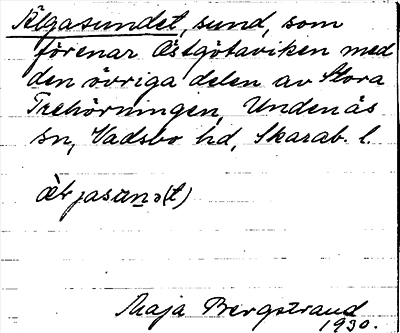 Älgasundet, sund, som
förenar Östgötaviken med
den övriga delen av Stora
Trehörningen, Undenäs
sn, Vadsbo hd, Skarab. l.
Maja Bergstrand
1930.